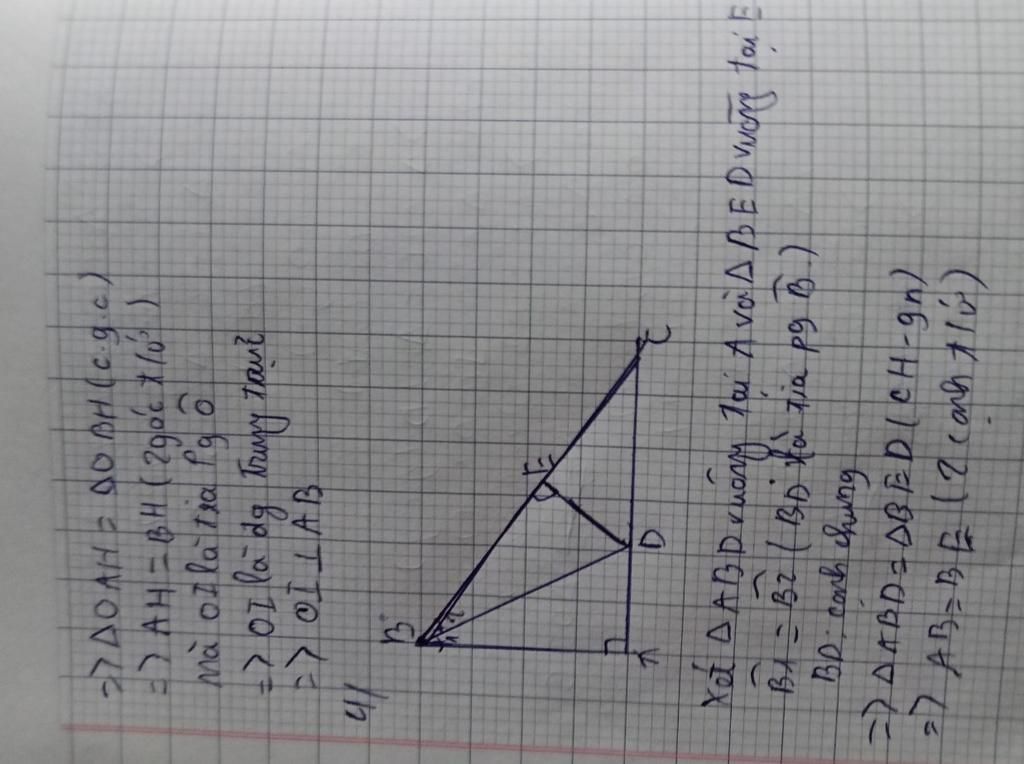 => ΔOAH = ΔOBH (c.g.c)
=> AH = BH (2 góc tứ)
mà OI là tia Pg Ô
=> OI là đg trung trực
=> OI ⊥ AB
4/
B
1 2
E
A D C
Xét ΔABD vuông tại A và ΔBED vuông tại E
B̂1 = B̂2 (BD là tia pg B̂)
BD: cạnh chung
=> ΔABD = ΔBED (CH-gn)
=> AB = BE (2 cạnh tứ)